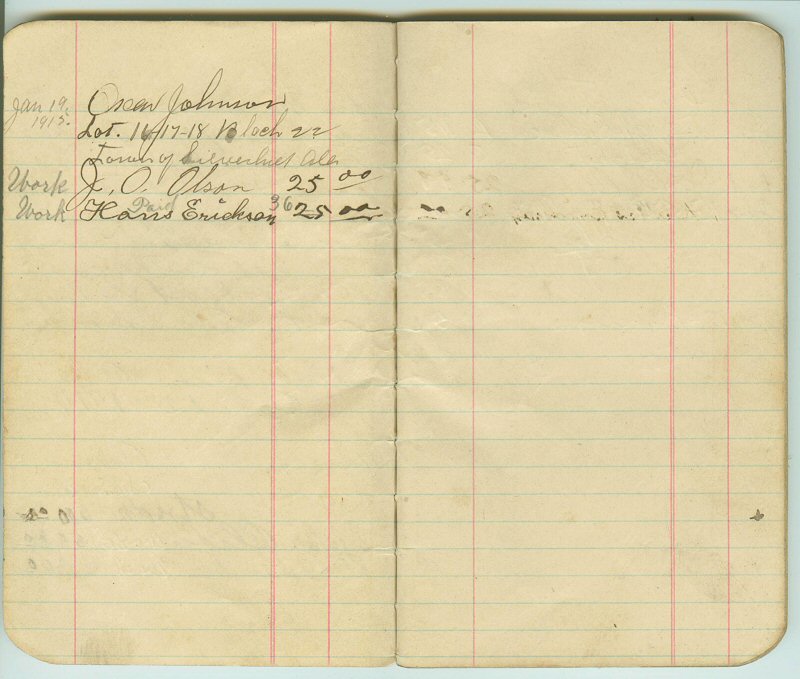 Jan 19. Oscar Johnson
1915. Lot. 16/17-18 Block 22
Town of Silverhill Ala
Work J. O. Olson 25 00
Work Hans Erickson Paid 36 25 00